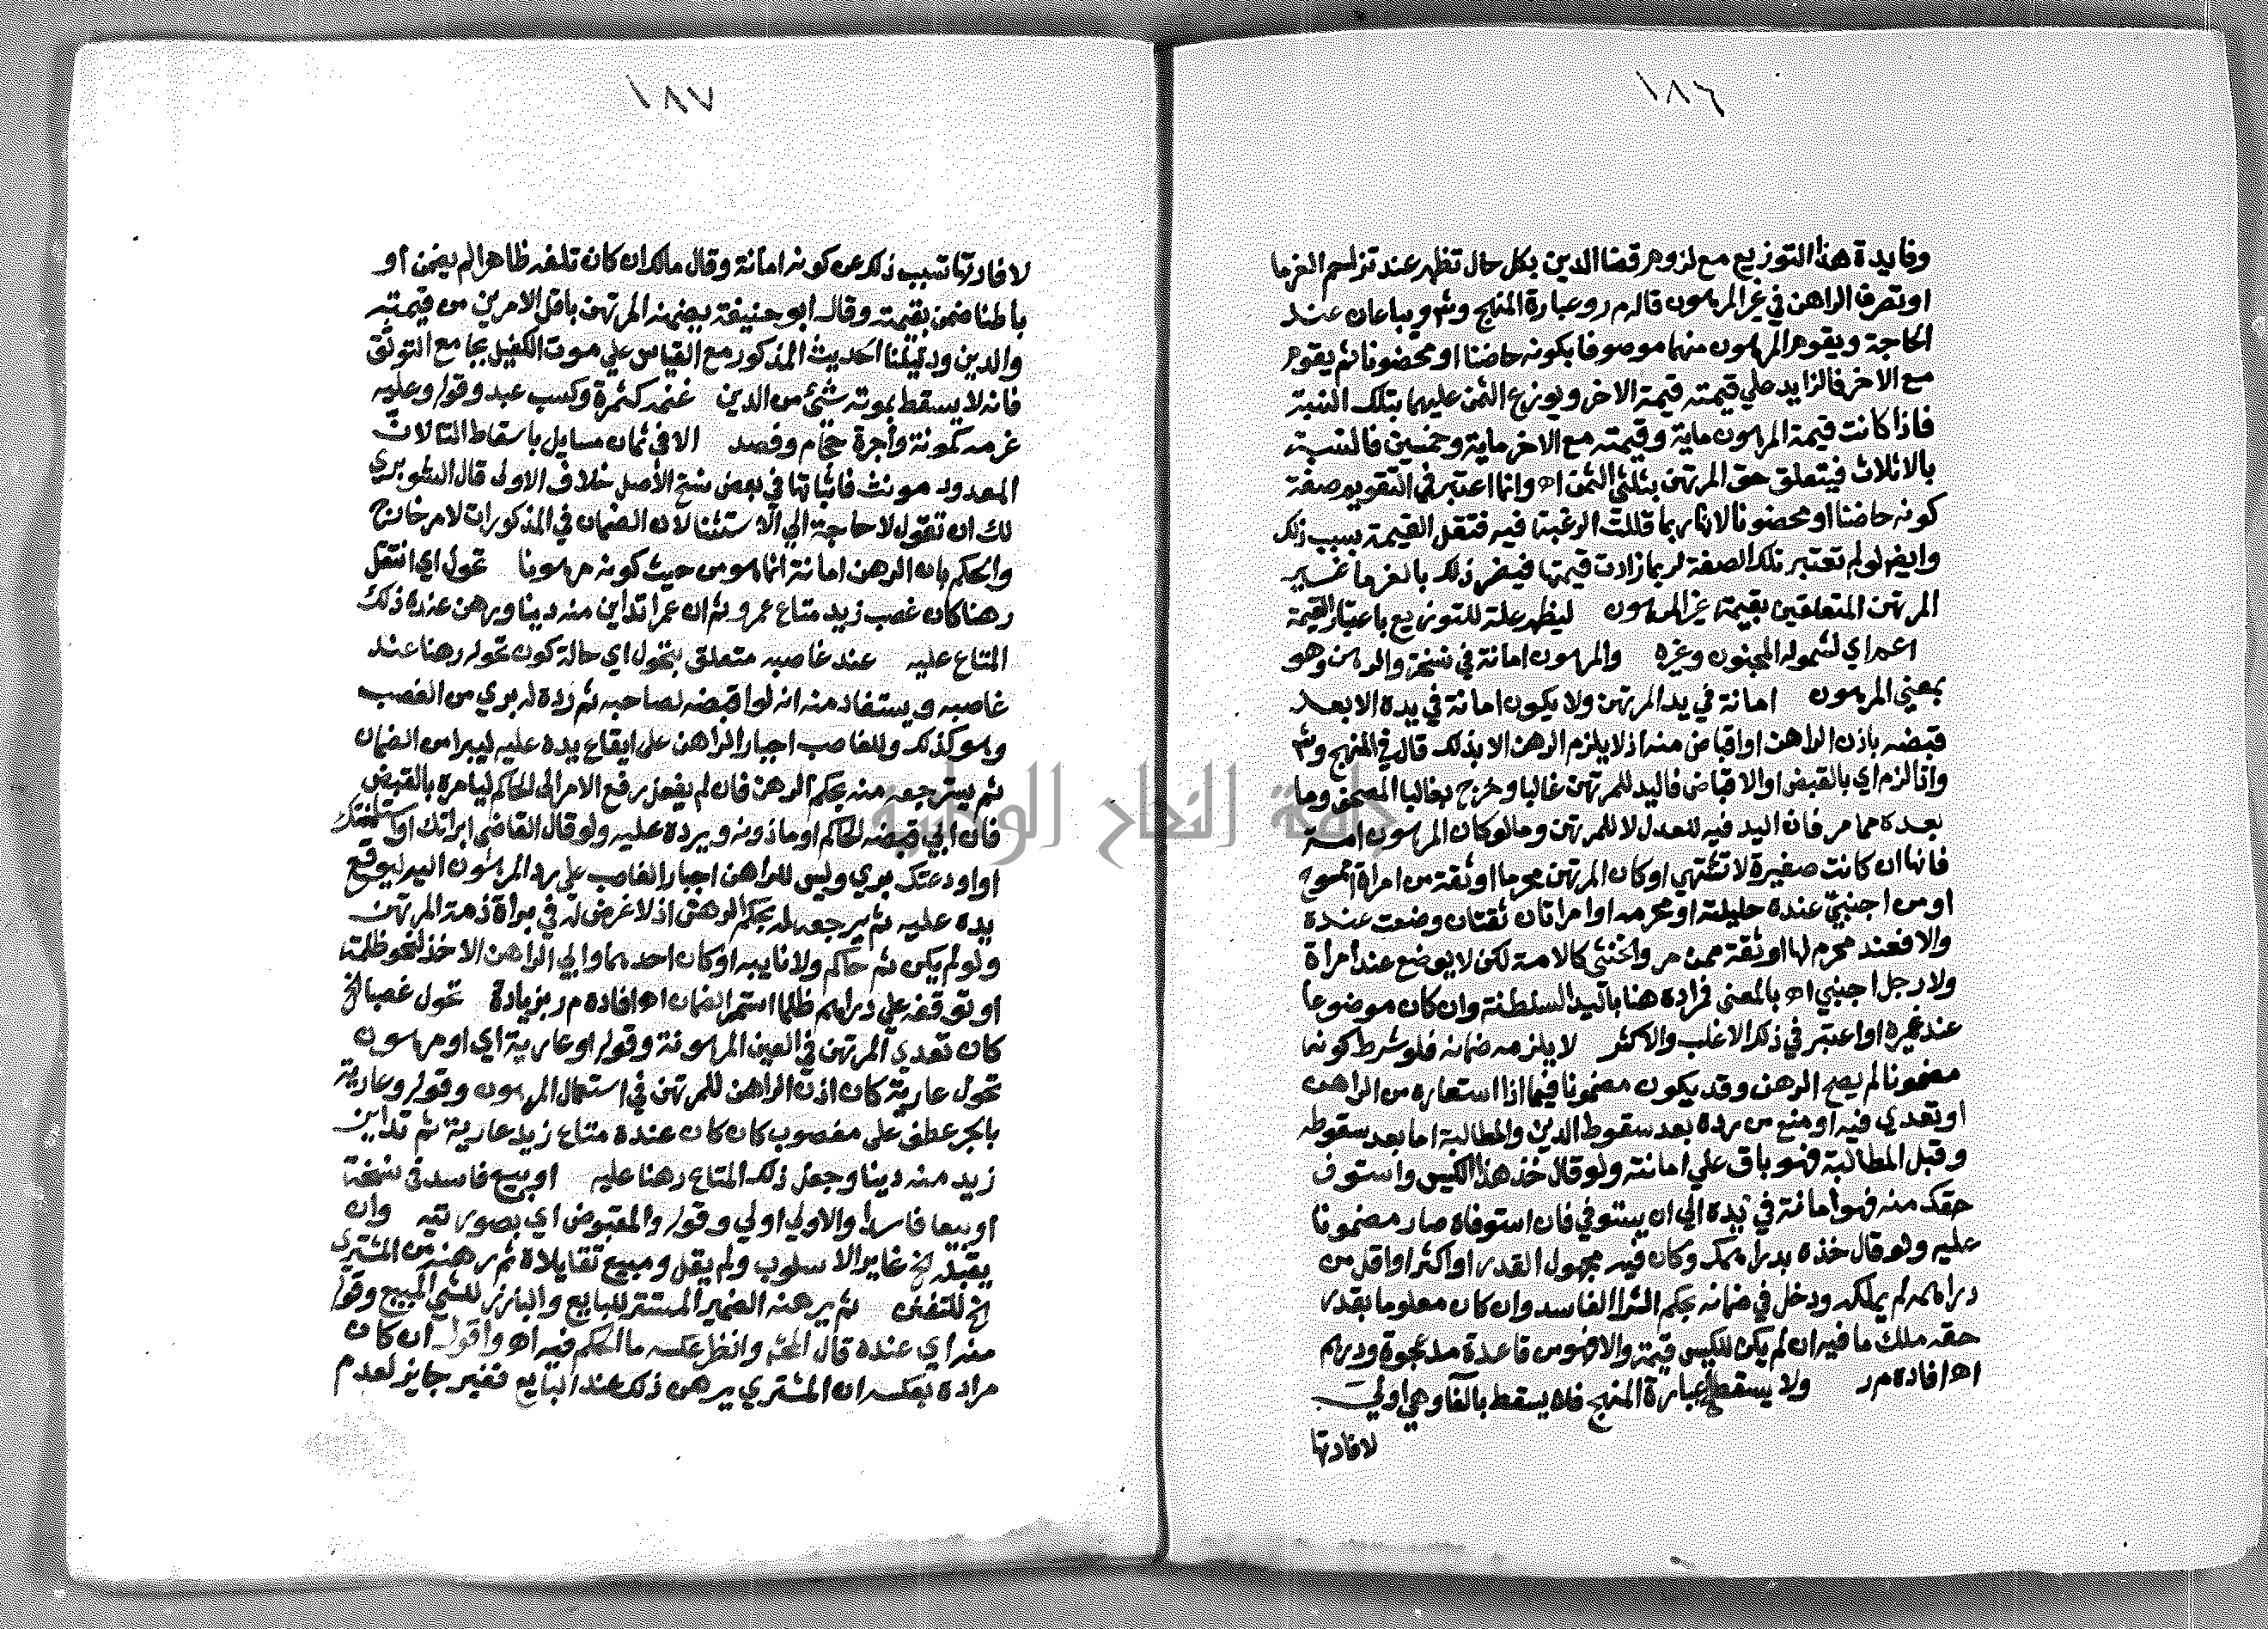 ١٨٦
وفايدة هذا التوزيع مع لزوم قضا الدين بكل حال تظهر عند تزاحم الغرما
او تصرف الراهن في غير المرهون قاله م ر وعبارة المنهج وش ويباعان عند
الحاجة ويقوم المرهون منهما موصوفا بكونه حاضنا او محضونا ثم يقوم
مع الاخر فالزايد علي قيمته قيمة الاخر ويوزع الثمن عليهما بتلك النسبة
فاذا كانت قيمة المرهون ماية وقيمته مع الاخر ماية وخمسين فالنسبة
بالاثلاث فيتعلق حق المرتهن بثلثي الثمن اه وانما اعتبر في التقويم صفة
كونه حاضنا او محضونا لانها ربما قللت الرغبة فيه فتقل القيمة بسبب ذلك
وايضا لو لم تعتبر تلك الصفة لربما زادت قيمتها فيضر ذلك بالغرما غير
المرتهن المتعلقين بقيمة غير المرهون ليظهر علة للتوزيع باعتبار القيمة
اعم اي لشموله المجنون وغيره والمرهون امانة في نسخة والرهن وهو
بمعني المرهون امانة في يد المرتهن ولا يكون امانة في يده الا بعد
قبضه باذن الراهن او اقباض منه اذ لا يلزم الرهن الا بذلك قال في المنهج وش
واذا لزم اي بالقبض او الاقباض فاليد للمرتهن غالبا وخرج بغالبا المصحف وما
بعده مما مر فان اليد فيه للعدل لا للمرتهن وما لو كان المرهون امة
فانها ان كانت صغيرة لا تشتهي او كان المرتهن محرما او ثقة من امراة او ممسوح
او من اجنبي عنده حليلته او محرمه او امراتان ثقتان وضعت عنده
والا فعند محرم لها او ثقة ممن مر والخنثي كالامة لكن لا يوضع عند امراة
ولا رجل اجنبي اه بالمعني فراده هنا باليد السلطنة وان كان موضوعا
عند غيره او اعتبر في ذلك الاغلب والاكثر لا يلزمه ضمانه فلو شرط كونه
مضمونا لم يصح الرهن وقد يكون مضمونا فيما اذا استعاره من الراهن
او تعدي فيه او منع من رده بعد سقوط الدين والمطالبة اما بعد سقوطه
وقبل المطالبة فهو باق علي امانته ولو قال خذ هذا الكيس واستوف
حقك منه فهو امانة في يده الي ان يستوفي فان استوفاه صار مضمونا
عليه ولو قال خذه بدراهمك وكان فيه مجهول القدر او اكثر او اقل من
دراهمه لم يملكه ودخل في ضمانه بحكم الشرا الفاسد وان كان معلوما بقدر
حقه ملك ما فيه ان لم يكن للكيس قيمة والا فهو من قاعدة مد عجوة ودرهم
اه افاده م ر ولا يسقط عبارة المنهج فلا يسقط بالفا وهي اولي
لافادتها
١٨٧
لافادتها تسبب ذلك عن كونه امانة وقال مالك ان كان تلفه ظاهرا لم يضمن او
باطنا ضمن بقيمته وقال ابو حنيفة يضمنه المرتهن باقل الامرين من قيمته
والدين ودليلنا الحديث المذكور مع القياس علي موت الكفيل بجامع التوثق
فانه لا يسقط بموته شي من الدين غنمه كثمرة وكسب عبد وقوله وعليه
غرمه كمونة واجرة حجام وفصد الا في ثمان مسايل باسقاط التا لان
المعدود مونث فاثباتها في بعض نسخ الاصل خلاف الاولي قال الشوبري
لك ان تقول لا حاجة الي الاستثنا لان الضمان في المذكورات لامر خارج
والحكم بان الرهن امانة انما هو من حيث كونه مرهونا تحول اي انتقل
رهنا كان غصب زيد متاع عمرو ثم ان عمرا تداين منه دينا ورهن عنده ذلك
المتاع عليه عند غاصبه متعلق بتحول اي حالة كون تحوله رهنا عند
غاصبه ويستفاد منه انه لو اقبضه لصاحبه ثم رده له بري من الغصب
وهو كذلك وللغاصب اجبار الراهن علي ايقاع يده عليه ليبرا من الضمان
ثم يسترجعه منه بحكم الرهن فان لم يفعل رفع الامر الي الحاكم ليامره بالقبض
فان ابي قبضه الحاكم او ماذونه ويرده عليه ولو قال القاضي ابراتك او استامنتك
او اودعتك بري وليس للراهن اجبار الغاصب علي رد المرهون اليه ليوقع
يده عليه ثم يرجعه له بحكم الرهن اذ لا غرض له في براة ذمة المرتهن
ولو لم يكن ثم حاكم ولا نايبه او كان احدهما وابي الراهن الاخذ لنحو ظلمه
او توقفه علي دراهم ظلما استمر الضمان اه افاده م ر بزيادة تحول غصبا الخ
كان تعدي المرتهن في العين المرهونة وقوله او عارية اي او مرهون
تحول عارية كان اذن الراهن للمرتهن في استعمال المرهون وقوله وعارية
بالجر عطف علي مغصوب كان كان عنده متاع زيد عارية ثم تداين
زيد منه دينا وجعل ذلك المتاع رهنا عليه او بيع فاسد في نسخة
او بيعا فاسدا والاولي اولي وقوله والمقبوض اي بصورتيه وان
يقبله الخ غاير الاسلوب ولم يقل ومبيع تقايلاه ثم رهنه من المشتري
الخ للتفنن ثم يرهنه الضمير المستتر للبايع والبارز للشي المبيع وقوله
منه اي عنده قال المحشي وانظر عكسه ما الحكم فيه اه واقول ان كان
مراده بعكسه ان المشتري يرهن ذلك عند البايع فغير جايز لعدم